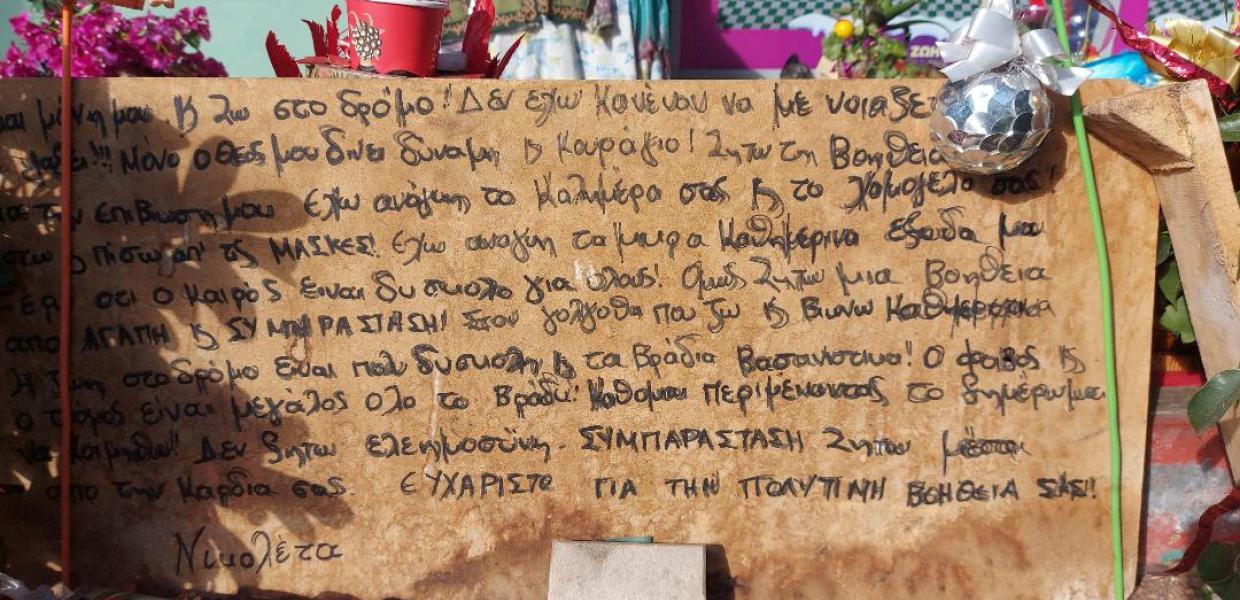 ΖΩΗ
μαι μόνη μου ȣ ζω στο δρόμο! Δεν έχω κανέναν να με νοιάζε
Μόνο ο θεός μου δινει δυναμη ȣ κουράγιο! Ζητω τη Βοηθεια
την επιβιωση μου εχω ανάγκη το καλημέρα σας ȣ το χαμογελο σας!
πισω απ' τις ΜΑΣΚΕΣ! Εχω αναγκη τα μικρα καθημερινα εξοδα μου
οτι ο καιρός ειναι δυσκολο για ολους! Ομως ζητω μια Βοηθεια
απο ΑΓΑΠΗ ȣ ΣΥΜΠΑΡΑΣΤΑΣΗ! Στον γολγοθα που ζω ȣ Βιωνω καθημερινα
Η ζωη στο δρόμο ειναι πολυ δυσκολη ȣ τα Βράδια Βασανιστικα! Ο φοιβος ȣ
ο τρόμος είναι μεγάλος ολο το Βράδυ! Καθομαι περιμενοντας το ξημέρωμα
να κοιμηθω!! Δεν ζητω ελεημοσύνη. ΣΥΜΠΑΡΑΣΤΑΣΗ Ζητω μέσα
απο την καρδια σας. ΕΥΧΑΡΙΣΤΩ ΓΙΑ ΤΗΝ ΠΟΛΥΤΙΜΗ ΒΟΗΘΕΙΑ ΣΑΣ!!
Νικολέτα